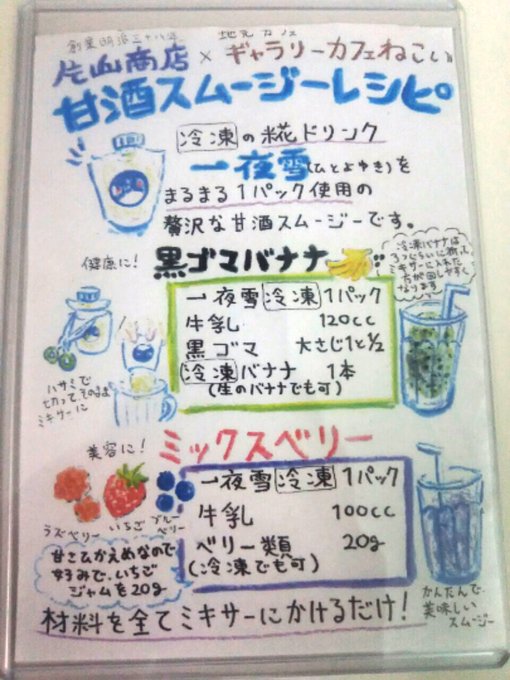 創業明治三十八年
地元カフェ
片山商店×ギャラリーカフェねこい
甘酒スムージーレシピ
冷凍の糀ドリンク
一夜雪(ひとよゆき)を
まるまる1パック使用の
贅沢な甘酒スムージーです。
健康に!
黒ゴマバナナ
冷凍バナナは
3つぐらいに折って
ミキサーに入れた
方が回しやすく
なります
一夜雪 冷凍 1パック
牛乳 120cc
黒ゴマ 大さじ1と1/2
冷凍バナナ 1本
(生のバナナでも可)
ハサミで
切って、そのまま
ミキサーに
美容に!
ミックスベリー
ラズベリー
いちご
ブルー
ベリー
一夜雪 冷凍 1パック
牛乳 100cc
ベリー類 20g
(冷凍でも可)
甘さひかえめなので
好みで、いちご
ジャムを20g
かんたんで、
美味しい
スムージー
材料を全てミキサーにかけるだけ!